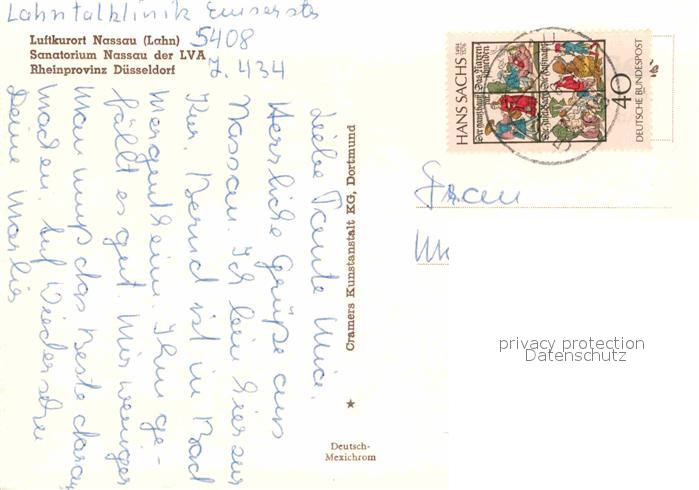 Lahntalklinik Emserstr
5408
Z. 434
Luftkurort Nassau (Lahn)
Sanatorium Nassau der LVA
Rheinprovinz Düsseldorf
Liebe Tante Mia,
Herrliche Grüße aus
Nassau. Ich bin hier zur
Kur. Bernd ist in Bad
Mergentheim. Ihm ge-
fällt es gut. Mir weniger
Man muß das Beste daraus
machen. Auf Wiedersehen
Deine Marlis
Cramers Kunstanstalt KG, Dortmund
Deutsch-
Mexichrom
HANS SACHS 1494 1576
40
DEUTSCHE BUNDESPOST
Frau
privacy protection
Datenschutz